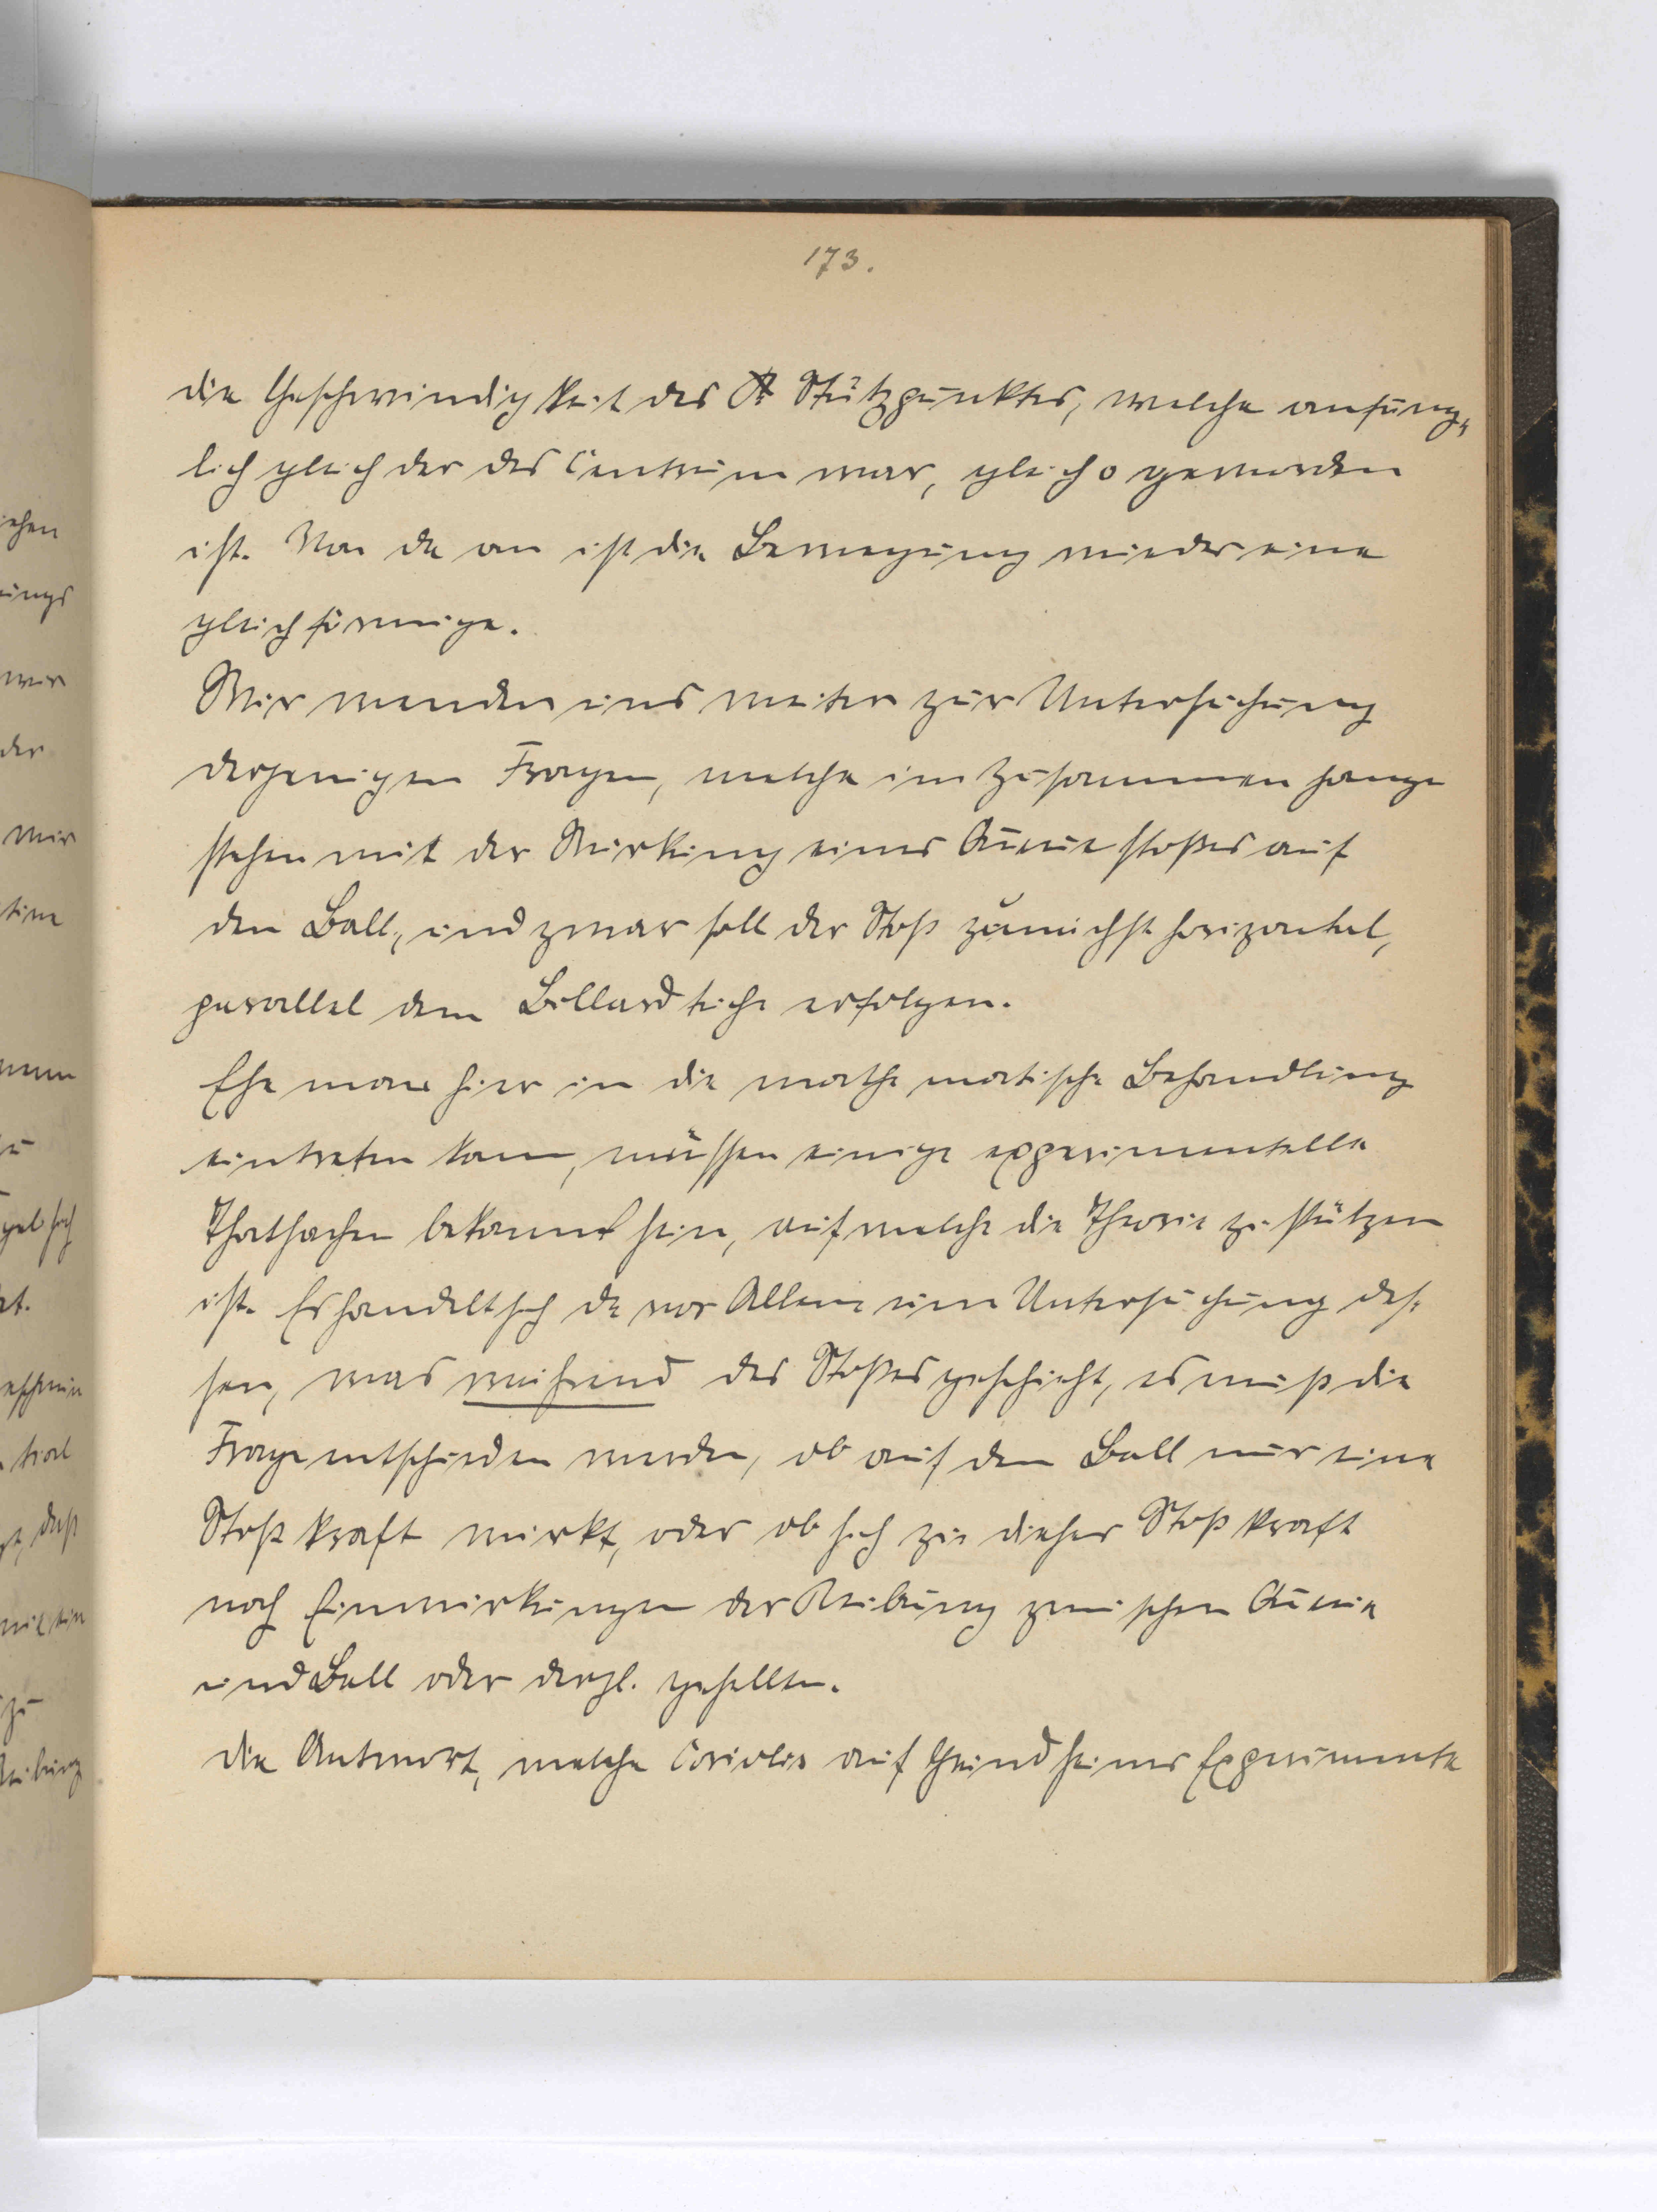 173.
die Geschwindigkeit des Stützpunktes, welche anfäng-
lich gleich der des Centrum war, gleich 0 geworden
ist. Von da an ist die Bewegung wieder eine
gleichförmige.
Wir wenden uns weiter zur Untersuchung
derjenigen Fragen, welche im Zusammenhange
stehen mit der Wirkung eines Queuestoßes auf
den Ball, und zwar soll der Stoß zunächst horizontal,
parallel dem Billardtuche erfolgen.
Ehe man hier in die mathematische Behandlung
eintreten kann, müssen einige experimentelle
Thatsachen bekannt sein, auf welche die Theorie zu stützen
ist. Es handelt sich da vor Allem um Untersuchung des-
sen, was während des Stoßes geschieht, es muß die
Frage entschieden werden, ob auf den Ball nur eine
Stoßkraft wirkt, oder ob sich zu dieser Stoßkraft
noch Einwirkungen der Reibung zwischen Queue
und Ball oder dergl. gesellen.
Die Antwort, welche Coriolis auf Grund seiner Experimente